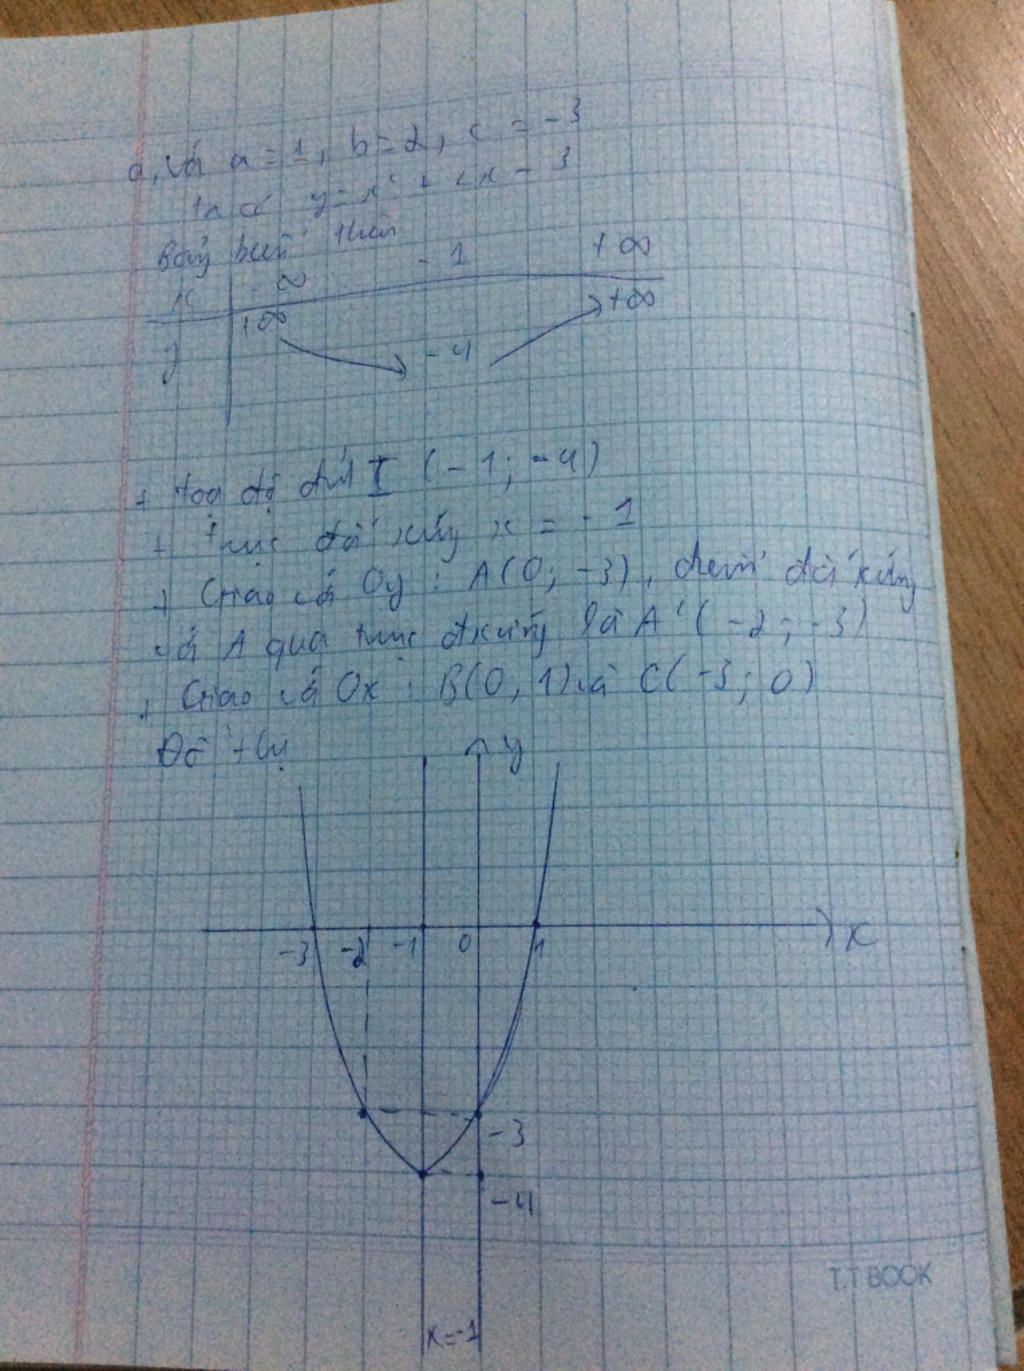 a, Với a = 1, b = 2, c = -3
ta có y = x² + 2x - 3
Bảng biến thiên
x -∞ -1 +∞
y +∞ -4 +∞
+ Toạ độ đỉnh I (-1; -4)
+ Trục đối xứng x = -1
+ Giao với Oy : A(0; -3), điểm đối xứng
với A qua trục đxứng là A'(-2; -3)
+ Giao với Ox : B(0, 1) và C(-3; 0)
Đồ thị
y
-3 -2 -1 0 1 x
-3
-4
x=-1
T.T BOOK